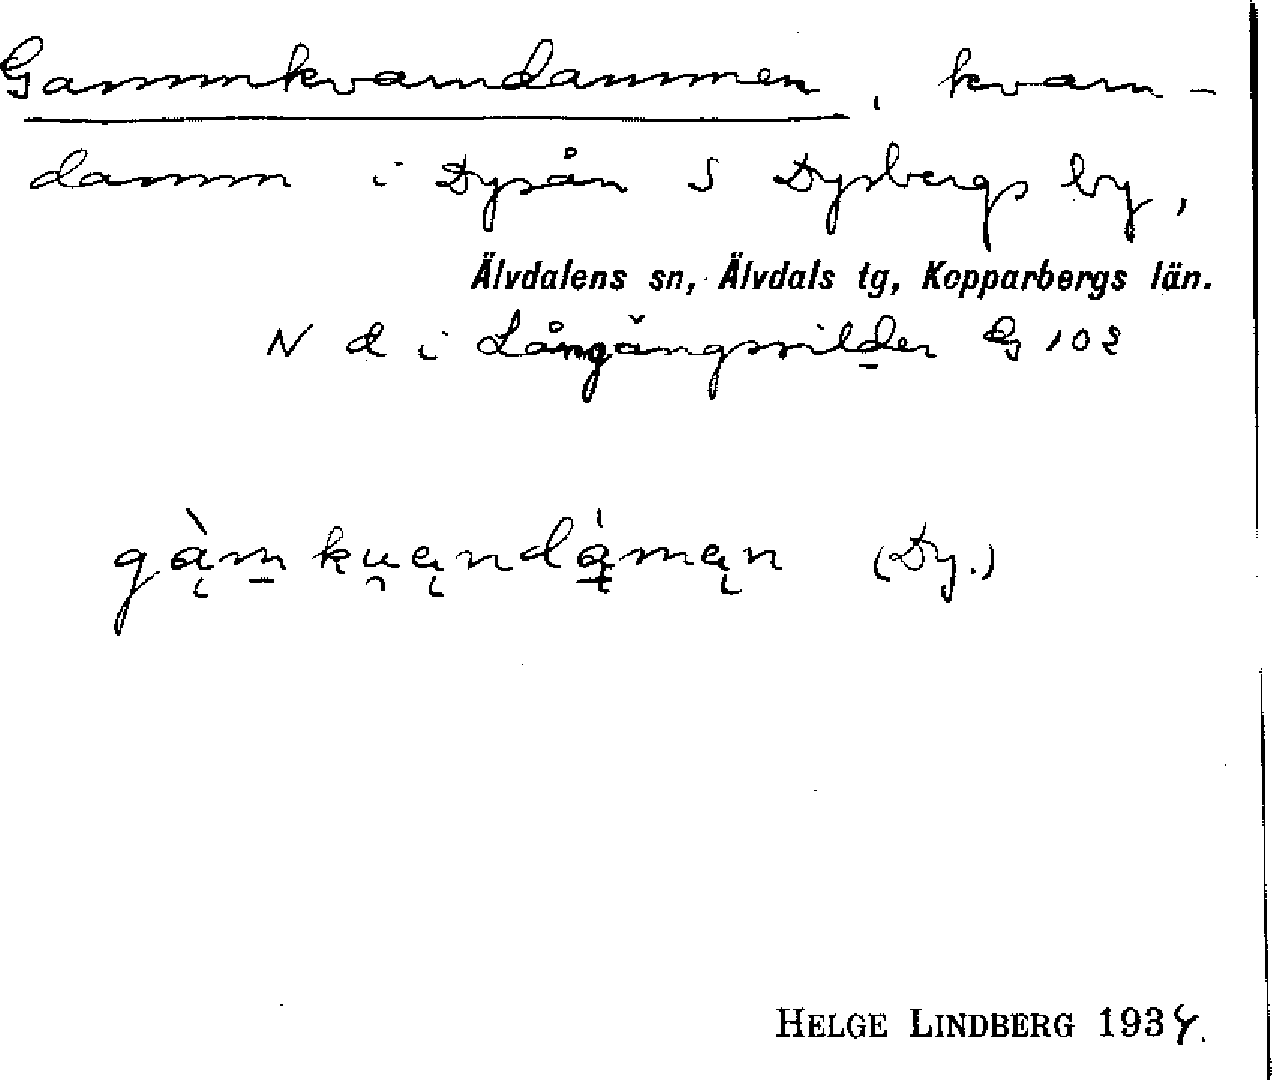 Gammkvarndammen, kvarn-
damm i Dysån S Dysbergs by,
Älvdalens sn, Älvdals tg, Kopparbergs län.
N d i
gàm kuandáman (Dy.)
HELGE LINDBERG 1934.